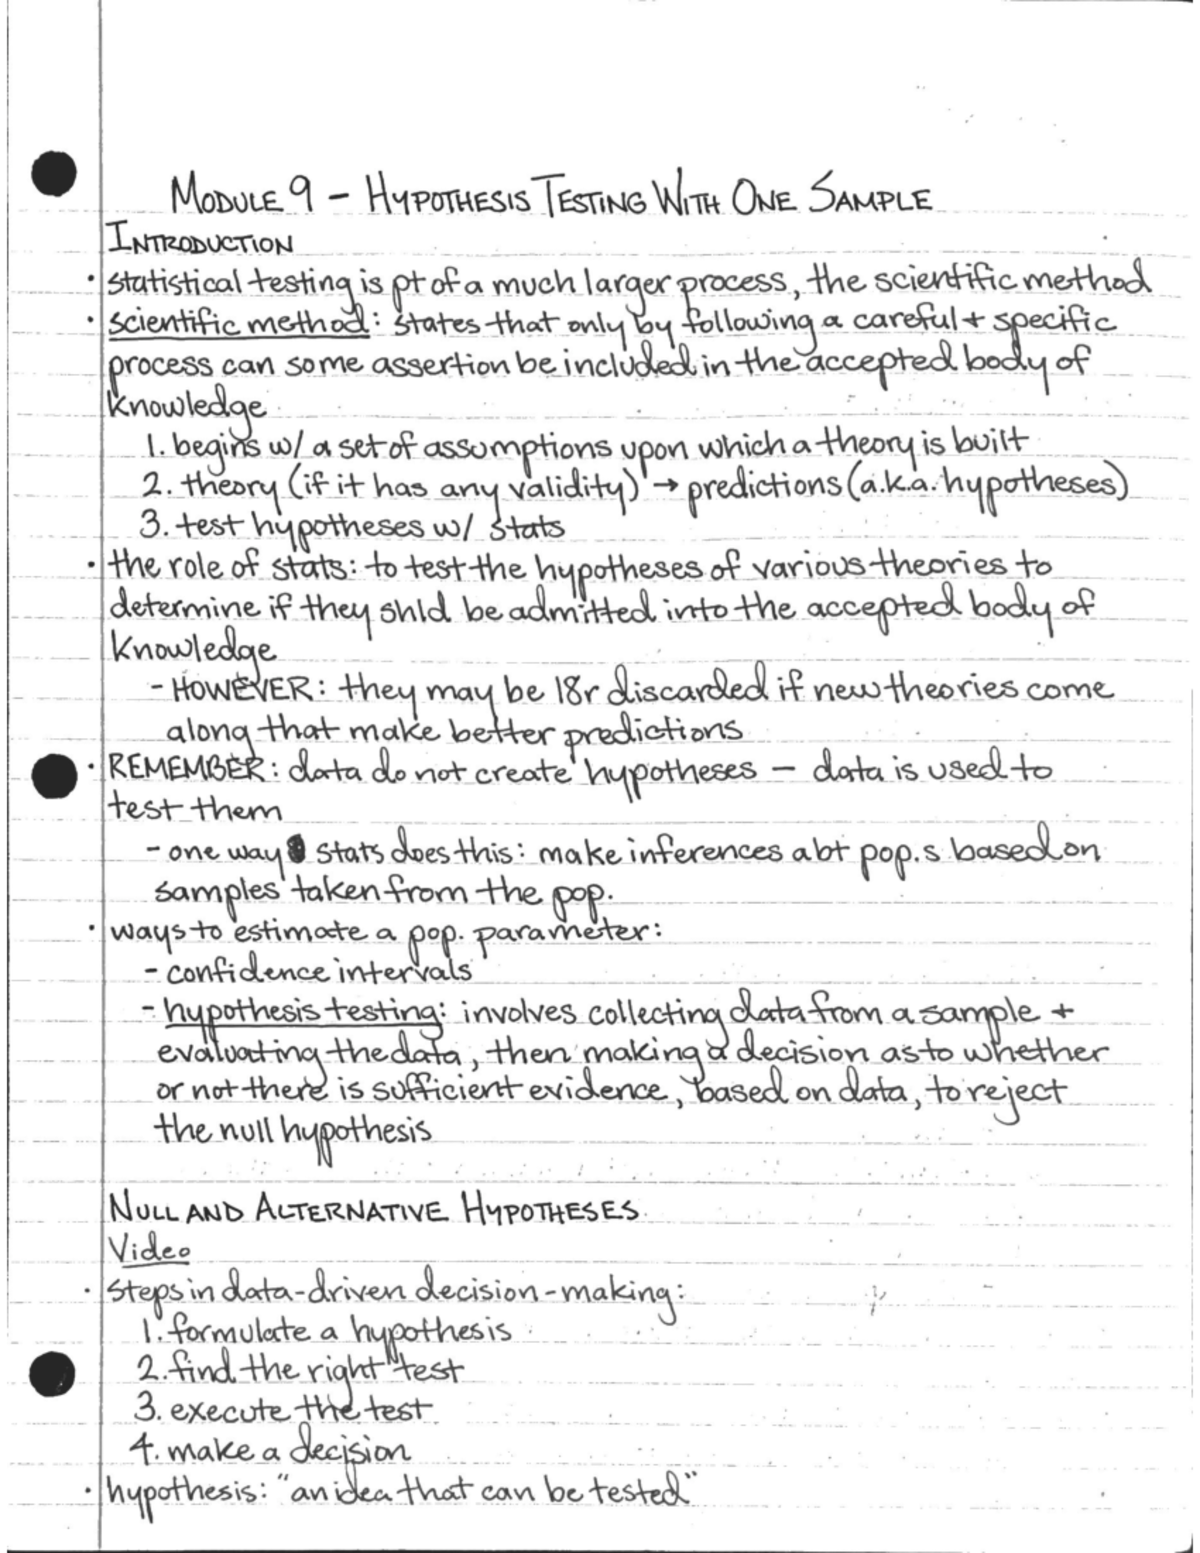 MODULE 9 – HYPOTHESIS TESTING WITH ONE SAMPLE
INTRODUCTION
· statistical testing is pt of a much larger process, the scientific method
· scientific method: states that only by following a careful + specific
process can some assertion be included in the accepted body of
knowledge
1. begins w/ a set of assumptions upon which a theory is built
2. theory (if it has any validity) → predictions (a.k.a. hypotheses)
3. test hypotheses w/ stats
· the role of stats: to test the hypotheses of various theories to
determine if they shld be admitted into the accepted body of
knowledge
- HOWEVER: they may be l8r discarded if new theories come
along that make better predictions
· REMEMBER: data do not create hypotheses – data is used to
test them
- one way stats does this: make inferences abt pop.s based on
samples taken from the pop.
· ways to estimate a pop. parameter:
- confidence intervals
- hypothesis testing: involves collecting data from a sample +
evaluating the data, then making a decision as to whether
or not there is sufficient evidence, based on data, to reject
the null hypothesis
NULL AND ALTERNATIVE HYPOTHESES
Video
· steps in data-driven decision-making:
1. formulate a hypothesis
2. find the right test
3. execute the test
4. make a decision
· hypothesis: "an idea that can be tested"